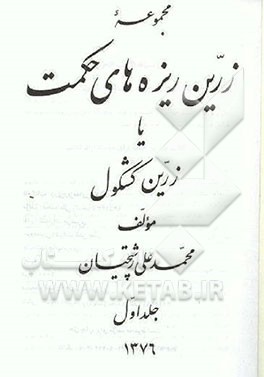 مجموعهٔ
زرّین ریزه های حکمت
یا
زرّین کشکول
مؤلف
محمّد علی شیخیان
جلد اوّل
۱۳۷۶
WWW.KETAB.IR